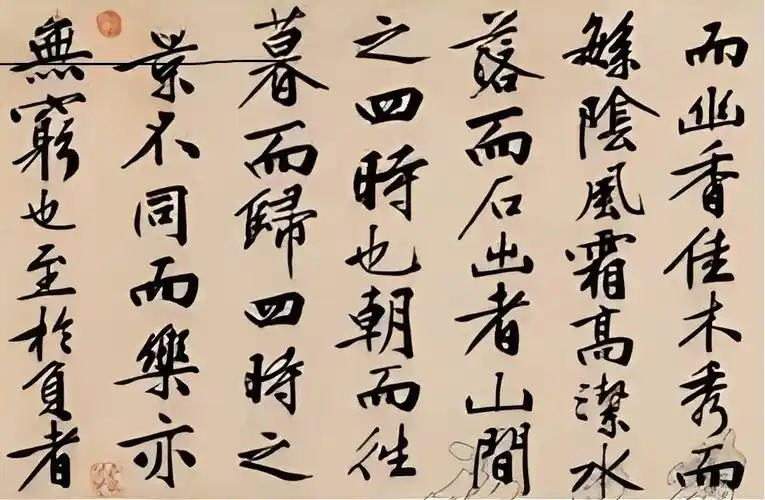 而幽香佳木秀而
繁陰風霜高潔水
落而石出者山間
之四時也朝而往
暮而歸四時之
景不同而樂亦
無窮也至於負者